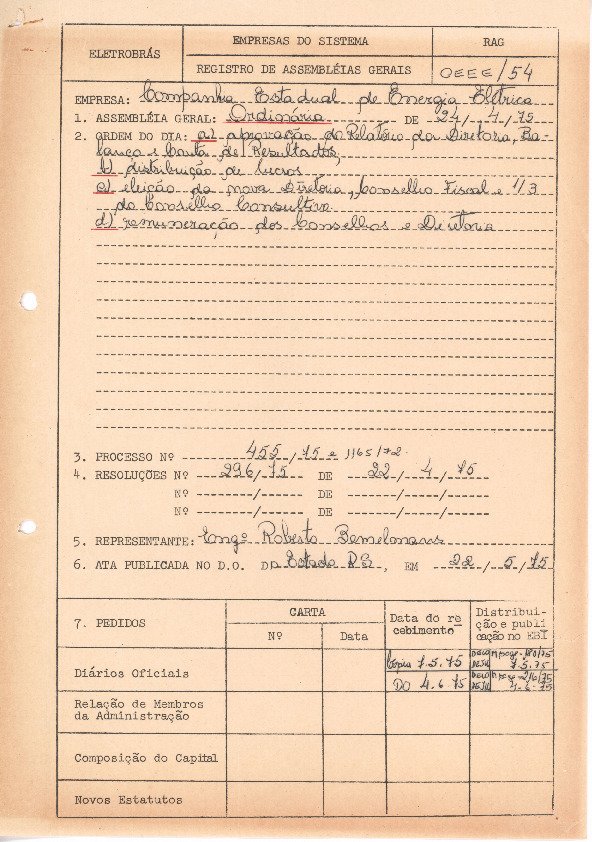 ELETROBRÁS
EMPRESAS DO SISTEMA
RAG
REGISTRO DE ASSEMBLÉIAS GERAIS
CEEE/54
EMPRESA: Companhia Estadual de Energia Elétrica
1. ASSEMBLÉIA GERAL: Ordinária DE 24/4/75
2. ORDEM DO DIA: a) aprovação do Relatório da Diretoria, Ba-
lanço e Conta de Resultados,
b) distribuição de lucros
c) eleição da nova Diretoria, Conselho Fiscal e 1/3
do Conselho Consultivo.
d) remuneração dos Conselhos e Diretoria
3. PROCESSO Nº 455/75 e 1165/72.
4. RESOLUÇÕES Nº 296/75 DE 22/4/75
Nº ------/----- DE ------/-----/-----
Nº ------/----- DE ------/-----/-----
5. REPRESENTANTE: Engº Roberto
6. ATA PUBLICADA NO D.O. DO Estado RS, EM 22/5/75
7. PEDIDOS
CARTA
Nº
Data
Data do re
cebimento
Distribui-
ção e publi
cação no EBI
Diários Oficiais
Cópia 7.5.75
7.5.75
DO 4.6.75
4-6-75
Relação de Membros
da Administração
Composição do Capital
Novos Estatutos